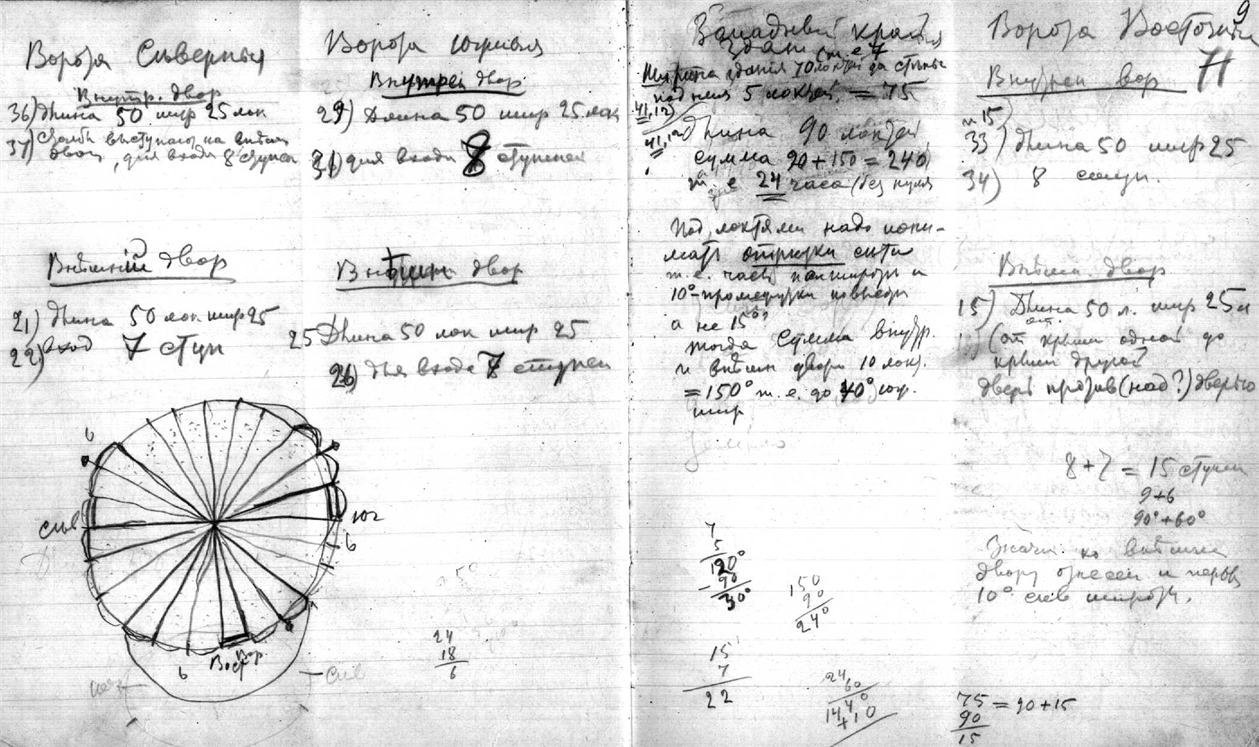 Ворота Северныя
Внутр. двор
36) Длина 50 шир 25 лок
37) Столбы выступают на внешн
двор, для входа 8 ступен
Внешний двор
21) Длина 50 лок шир 25
22) вход 7 ступ
6
сев
юг
6
6
Вост Вор.
сев
24
18
6
Ворота южныя
Внутрен двор.
29) Длина 50 шир 25 лок
31) для входа 8 ступеней
Внешн двор
25 Длина 50 лок шир 25
26) для входа 7 ступеней
Западный край
здания
Ширина здания 70 локтей да стены
под ней 5 локтей. = 75
41,12)
41,12
Длина 90 локтей
сумма 90+150 = 240
т. е 24 часа (без нуля
Под локтями надо пони-
мать отрезки сети
т.е. часы по широты и
10°-промежутки
а не 15°,
тогда сумма внутр.
и внешн двора 10 лок.
= 150° т. е. до 40° юж.
шир
7
5
120°
90
30°
150
90
24°
15
7
22
24
60
144°
+10
9
Ворота Восточн
71
Внутрен вор
и 15)
33) Длина 50 шир 25
34) 8 ступ.
Внешн. двор
15) Длина 50 л. шир 25 л
(от крыши одной до
крыши другой
дверь против (над?) дверью
8+7 = 15 ступен
9+6
90°+60°
Значит ко внешнему
двору отнесен и первы
10° сев широты.
75 = 90+15
90
15